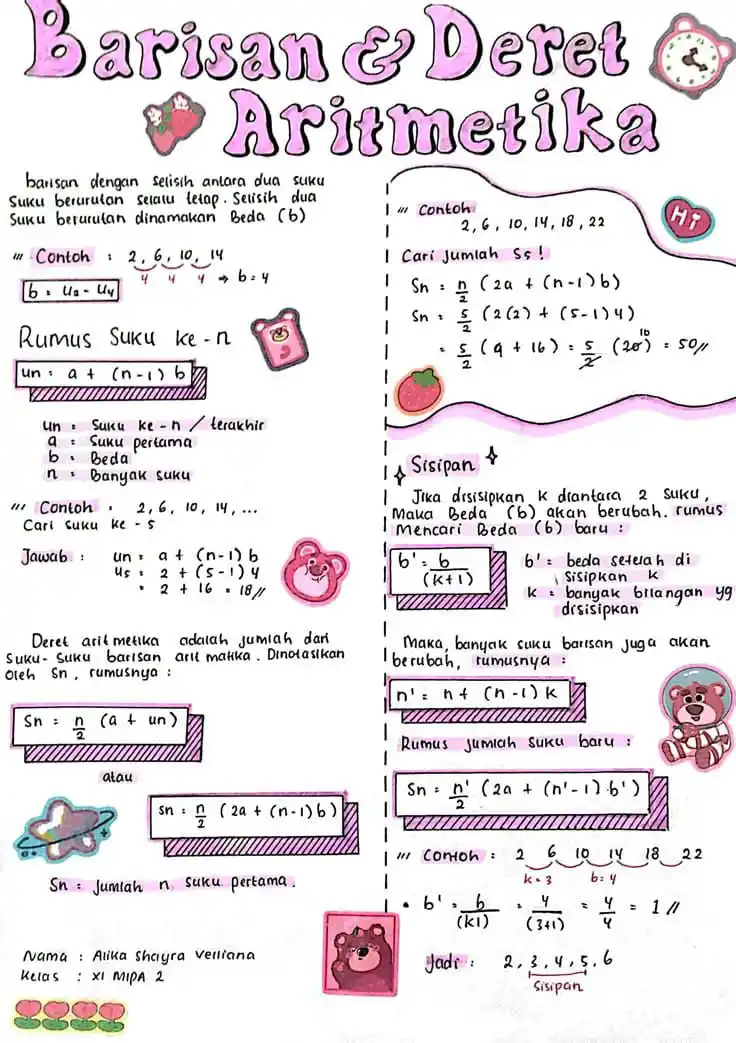 Barisan & Deret
Aritmetika
barisan dengan selisih antara dua suku
suku berurutan selalu tetap. Selisih dua
suku berurutan dinamakan Beda (b)
/// Contoh : 2, 6, 10, 14
4 4 4 → b = 4
b = U₂ - U₄
Rumus suku ke-n
un = a + (n-1) b
un = Suku ke-n / terakhir
a = Suku pertama
b = Beda
n = Banyak suku
/// Contoh : 2, 6, 10, 14, ...
Cari suku ke - 5
Jawab : un = a + (n-1) b
u5 = 2 + (5-1) 4
= 2 + 16 = 18//
Deret aritmetika adalah jumlah dari
suku-suku barisan aritmatika. Dinotasikan
oleh Sn, rumusnya :
Sn = n/2 (a + un)
atau
Sn = n/2 (2a + (n-1) b)
Sn = Jumlah n suku pertama.
Nama : Alika Shayra Velliana
Kelas : XI MIPA 2
/// Contoh :
2, 6, 10, 14, 18, 22
Cari jumlah S5 !
Sn = n/2 (2a + (n-1) b)
Sn = 5/2 (2(2) + (5-1) 4)
= 5/2 (4 + 16) = 5/2 (20) 10 = 50//
Hi
Sisipan
Jika disisipkan k diantara 2 suku,
Maka Beda (b) akan berubah. rumus
Mencari Beda (b) baru :
b' = b/(k+1)
b' = beda setelah di
sisipkan k
k = banyak bilangan yg
disisipkan
Maka, banyak suku barisan juga akan
berubah, rumusnya :
n' = n + (n-1) k
Rumus jumlah suku baru :
Sn = n'/2 (2a + (n'-1) b')
/// Contoh : 2 6 10 14 18 22
k = 3 b = 4
• b' = b/(k1) = 4/(3+1) = 4/4 = 1 //
Jadi : 2, 3, 4, 5, 6
sisipan